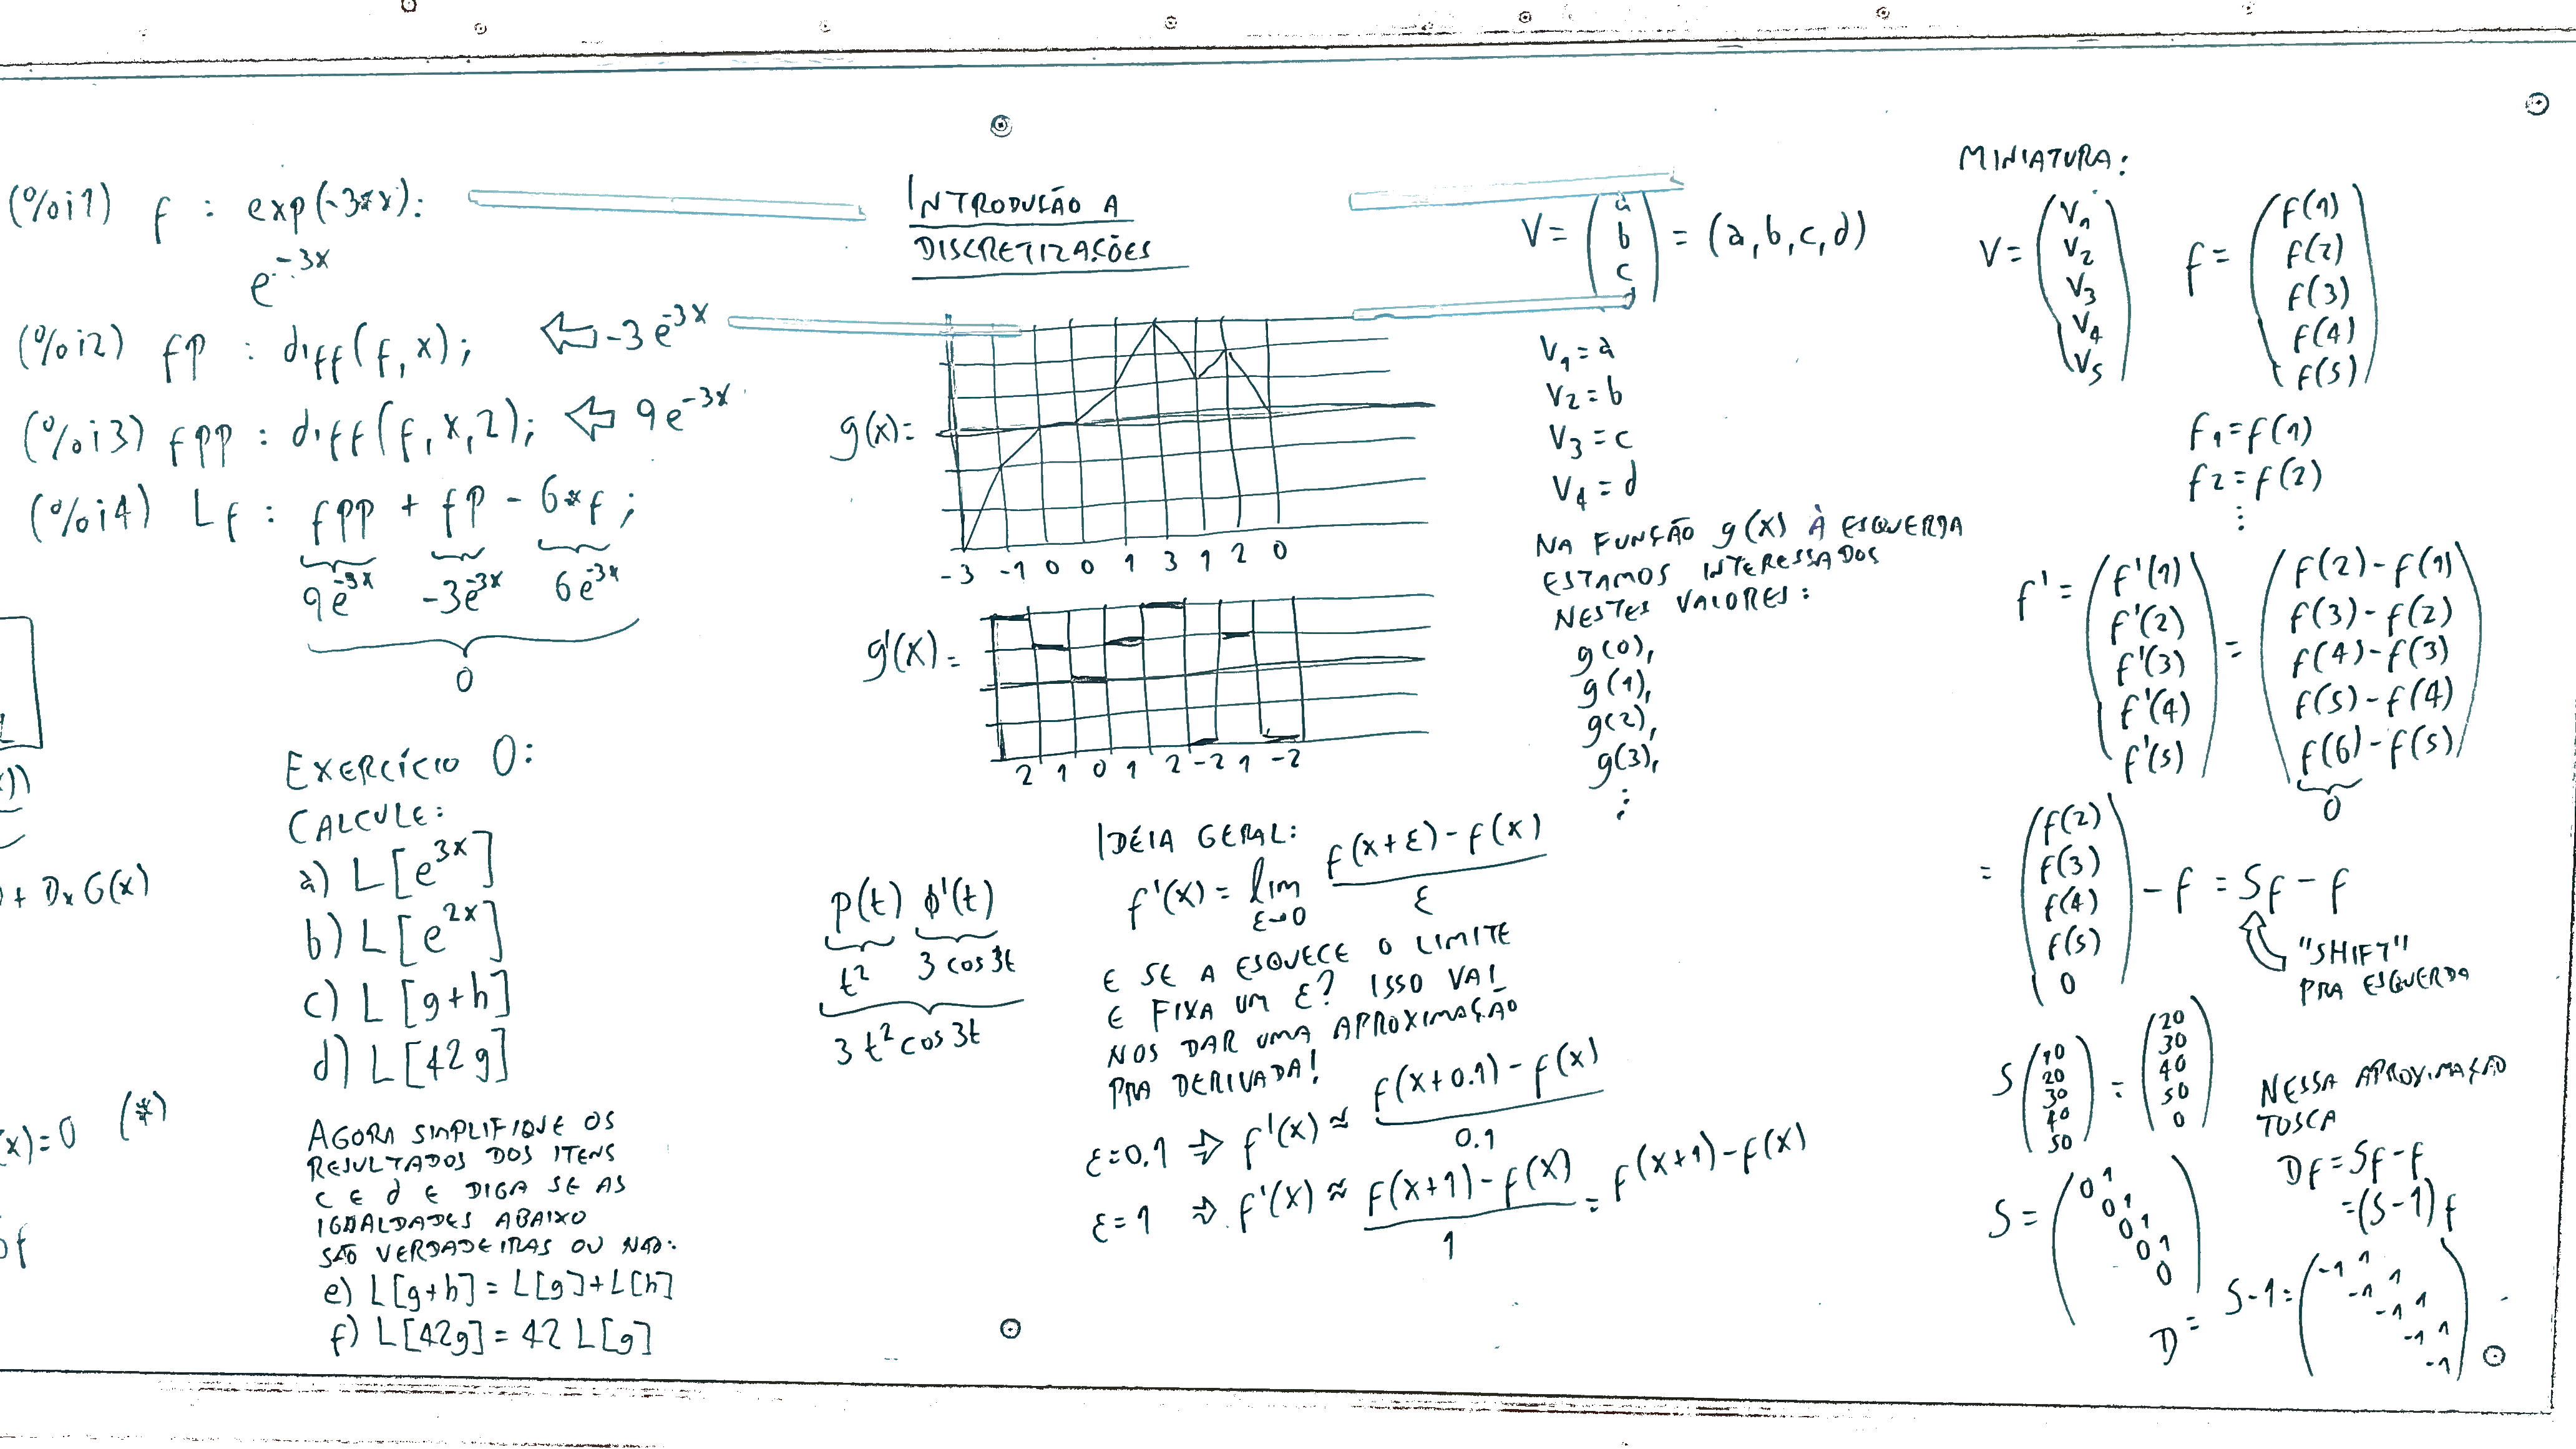 (%i1) f : exp(-3*x):
e^{-3x}
(%i2) fp : diff(f,x); ⇐ -3e^{-3x}
(%i3) fpp : diff(f,x,2); ⇐ 9e^{-3x}
(%i4) Lf : fpp + fp - 6*f;
9e^{-3x} -3e^{-3x} 6e^{-3x}
0
+ Dx G(x)
(x)=0 (*)
EXERCÍCIO 0:
CALCULE:
a) L[e^{3x}]
b) L[e^{2x}]
c) L[g+h]
d) L[42g]
AGORA SIMPLIFIQUE OS
RESULTADOS DOS ITENS
C E d E DIGA SE AS
IGUALDADES ABAIXO
SÃO VERDADEIRAS OU NÃO:
e) L[g+h] = L[g]+L[h]
f) L[42g] = 42 L[g]
INTRODUÇÃO A
DISCRETIZAÇÕES
g(x)=
-3 -1 0 0 1 3 1 2 0
g'(x)=
2 1 0 1 2 -2 1 -2
p(t) φ'(t)
t² 3 cos 3t
3t² cos 3t
IDÉIA GERAL:
f'(x) = lim_{ε→0} (f(x+ε)-f(x))/ε
E SE A ESQUECE O LIMITE
E FIXA UM ε? ISSO VAI
NOS DAR UMA APROXIMAÇÃO
PRA DERIVADA!
ε=0.1 ⇒ f'(x) ≈ (f(x+0.1)-f(x))/0.1
ε=1 ⇒ f'(x) ≈ (f(x+1)-f(x))/1 = f(x+1)-f(x)
V = (a b c d) = (a,b,c,d)
V₁=a
V₂=b
V₃=c
V₄=d
NA FUNÇÃO g(x) À ESQUERDA
ESTAMOS INTERESSADOS
NESTES VALORES:
g(0),
g(1),
g(2),
g(3),
⋮
MINIATURA:
V = (V₁ V₂ V₃ V₄ V₅) f = (f(1) f(2) f(3) f(4) f(5))
f₁=f(1)
f₂=f(2)
⋮
f' = (f'(1) f'(2) f'(3) f'(4) f'(5)) = (f(2)-f(1) f(3)-f(2) f(4)-f(3) f(5)-f(4) f(6)-f(5))
0
= (f(2) f(3) f(4) f(5) 0) - f = Sf - f
"SHIFT"
PRA ESQUERDA
S (10 20 30 40 50) = (20 30 40 50 0)
NESSA APROXIMAÇÃO
TOSCA
Df = Sf - f
=(S-1)f
S = (0 1 0 1 0 1 0 1 0)
D = S-1 = (-1 1 -1 1 -1 1 -1 1 -1)